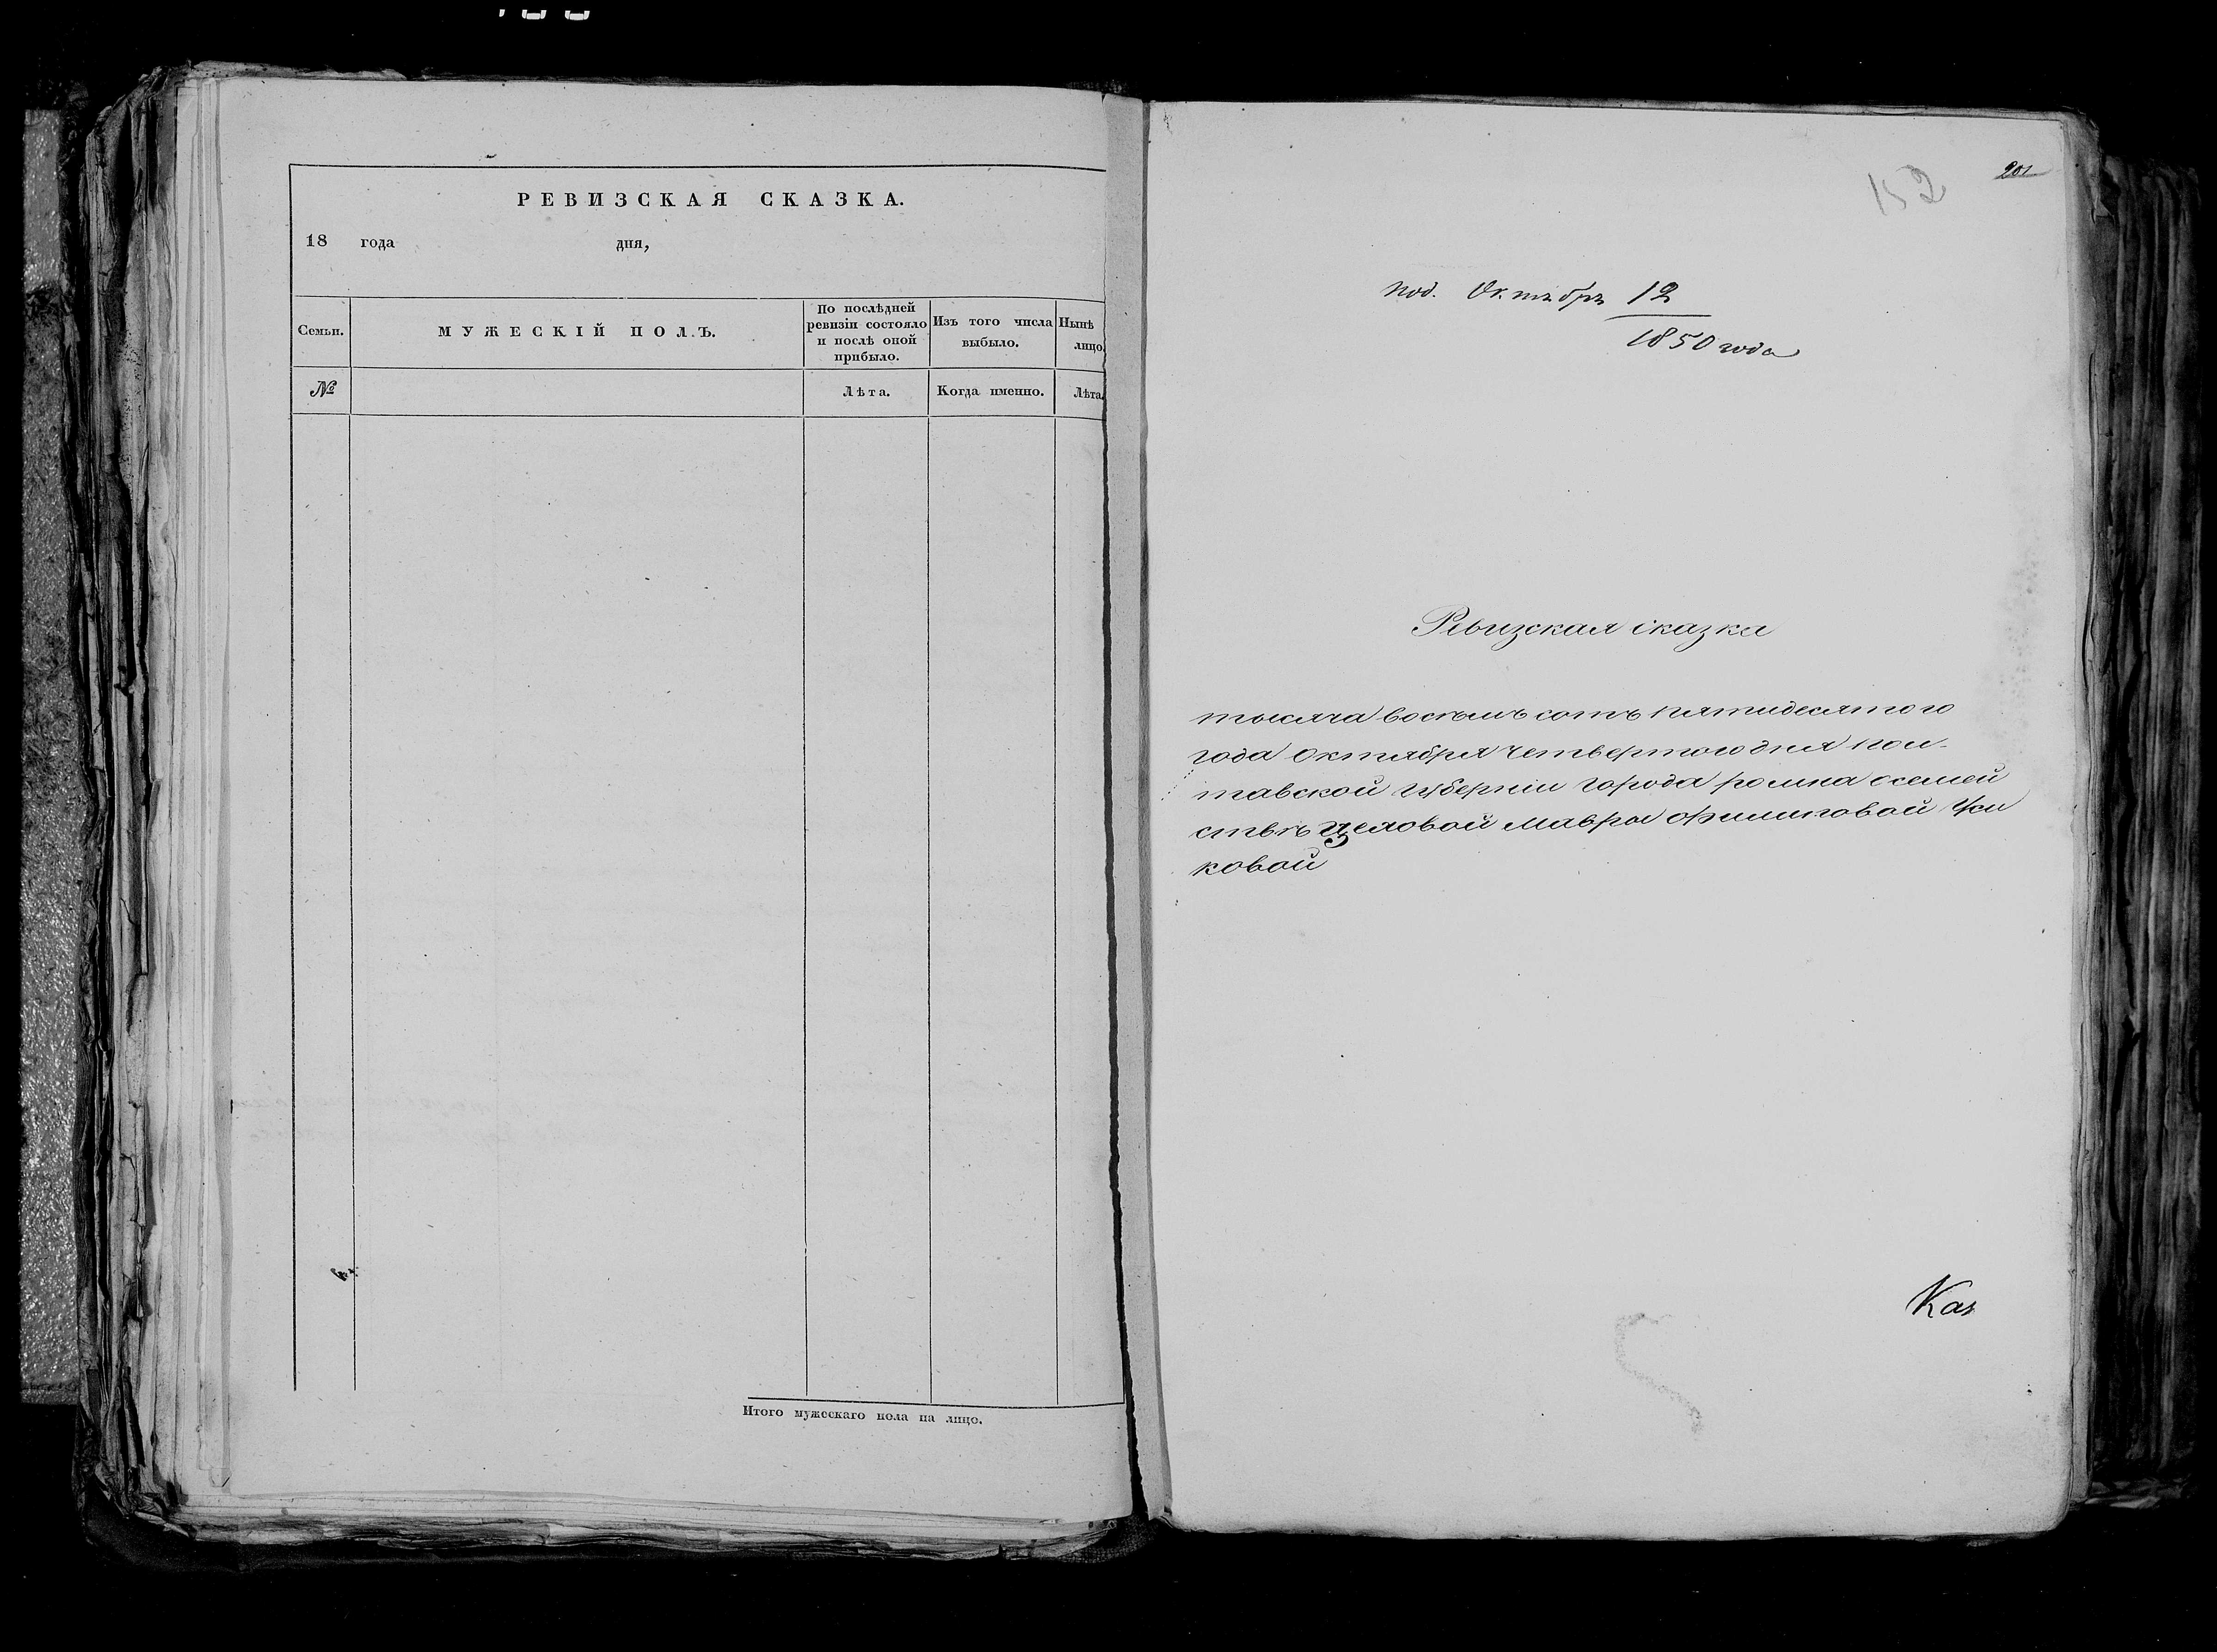 РЕВИЗСКАЯ СКАЗКА.
18 года дня,
Семьи.
МУЖЕСКІЙ ПОЛЪ.
По послѣдней
ревизіи состояло
и послѣ оной
прибыло.
Изъ того числа
выбыло.
Нынѣ
лицо.
№
Лѣта.
Когда именно.
Лѣта.
Итого мужескаго пола на лицо.
152
201
под. Октябр 12
1850 года
Ревизская сказка
тысяча восемь сотъ пятидесятого
года Октября четвертого дня пол-
тавской губерніи города ромна осемей
ствѣ мавры филиповой
ковой
Каз